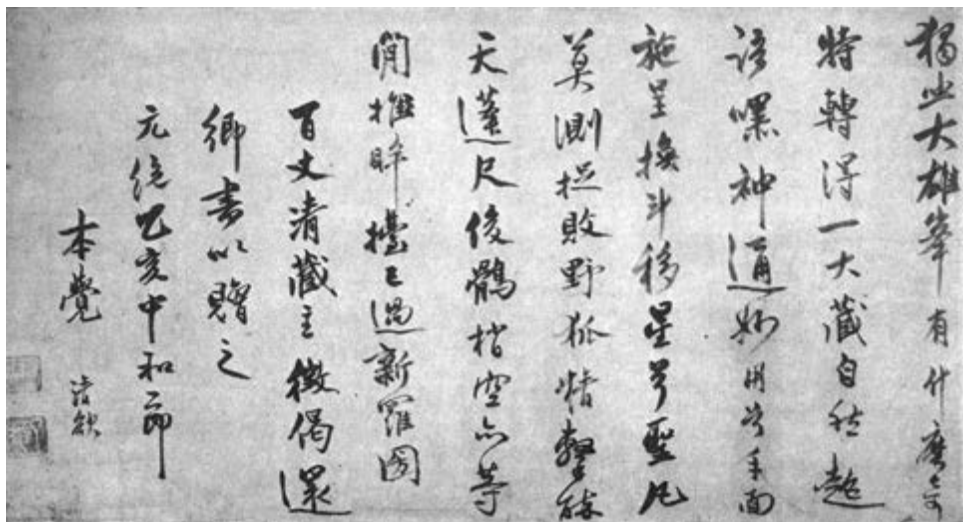 獨坐大雄峯有什麼奇
特轉得一大藏自然超
語嘿神通妙用面
施呈換斗移星兮聖凡
莫測捉敗野狐精
天蓬尺俊鶻梢空亦等
閒眸已過新羅國
百丈清藏主徵偈還
鄉書以贈之
元統乙亥中和節
本覺 清欲